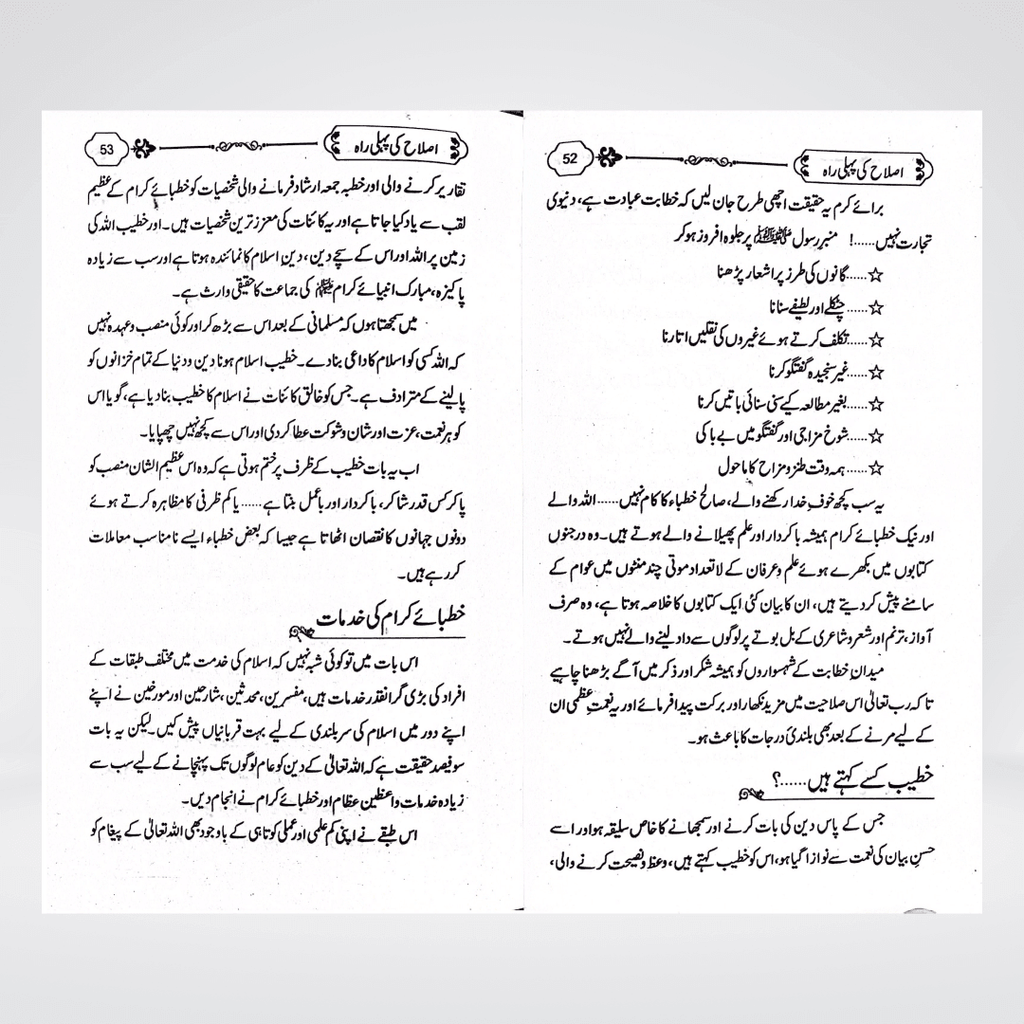 اصلاح کی پہلی راہ
52
برائے کرم یہ حقیقت اچھی طرح جان لیں کہ خطابت عبادت ہے، دنیوی
تجارت نہیں......! منبر رسول ﷺ پر جلوہ افروز ہو کر
☆......گانوں کی طرز پر اشعار پڑھنا
☆......چٹکلے اور لطیفے سنانا
☆......تکلف کرتے ہوئے غیروں کی نقلیں اتارنا
☆......غیر سنجیدہ گفتگو کرنا
☆......بغیر مطالعہ کیے سنی سنائی باتیں کرنا
☆......شوخ مزاجی اور گفتگو میں بے باکی
☆......ہمہ وقت طنز و مزاح کا ماحول
یہ سب کچھ خوفِ خدا رکھنے والے، صالح خطباء کا کام نہیں......اللہ والے
اور نیک خطبائے کرام ہمیشہ باکردار اور علم پھیلانے والے ہوتے ہیں۔ وہ درجنوں
کتابوں میں بکھرے ہوئے علم و عرفان کے لاتعداد موتی چند منٹوں میں عوام کے
سامنے پیش کر دیتے ہیں، ان کا بیان کئی ایک کتابوں کا خلاصہ ہوتا ہے، وہ صرف
آواز، ترنم اور شعر و شاعری کے بل بوتے پر لوگوں سے داد لینے والے نہیں ہوتے۔
میدانِ خطابت کے شہسواروں کو ہمیشہ شکر اور ذکر میں آگے بڑھنا چاہیے
تاکہ رب تعالیٰ اس صلاحیت میں مزید نکھار اور برکت پیدا فرمائے اور یہ نعمتِ عظمیٰ ان
کے لیے مرنے کے بعد بھی بلندیٔ درجات کا باعث ہو۔
خطیب کسے کہتے ہیں......؟
جس کے پاس دین کی بات کرنے اور سمجھانے کا خاص سلیقہ ہو اور اسے
حسنِ بیان کی نعمت سے نوازا گیا ہو، اس کو خطیب کہتے ہیں، وعظ و نصیحت کرنے والی،
اصلاح کی پہلی راہ
53
تقاریر کرنے والی اور خطبہ جمعہ ارشاد فرمانے والی شخصیات کو خطبائے کرام کے عظیم
لقب سے یاد کیا جاتا ہے اور یہ کائنات کی معزز ترین شخصیات ہیں۔ اور خطیب اللہ کی
زمین پر اللہ اور اس کے سچے دین، دینِ اسلام کا نمائندہ ہوتا ہے اور سب سے زیادہ
پاکیزہ، مبارک انبیائے کرام ﷺ کی جماعت کا حقیقی وارث ہے۔
میں سمجھتا ہوں کہ مسلمانی کے بعد اس سے بڑھ کر اور کوئی منصب و عہدہ نہیں
کہ اللہ کسی کو اسلام کا داعی بنا دے۔ خطیب اسلام ہونا دین و دنیا کے تمام خزانوں کو
پا لینے کے مترادف ہے۔ جس کو خالق کائنات نے اسلام کا خطیب بنا دیا ہے، گویا اس
کو ہر نعمت، عزت اور شان و شوکت عطا کر دی اور اس سے کچھ نہیں چھپایا۔
اب یہ بات خطیب کے ظرف پر ختم ہوتی ہے کہ وہ اس عظیم الشان منصب کو
پا کر کس قدر شاکر، باکردار اور باعمل بنتا ہے......یا کم ظرفی کا مظاہرہ کرتے ہوئے
دونوں جہانوں کا نقصان اٹھاتا ہے جیسا کہ بعض خطباء ایسے نامناسب معاملات
کر رہے ہیں۔
خطبائے کرام کی خدمات
اس بات میں تو کوئی شبہ نہیں کہ اسلام کی خدمت میں مختلف طبقات کے
افراد کی بڑی گرانقدر خدمات ہیں، مفسرین، محدثین، شارحین اور مورخین نے اپنے
اپنے دور میں اسلام کی سربلندی کے لیے بہت قربانیاں پیش کیں۔ لیکن یہ بات
سو فیصد حقیقت ہے کہ اللہ تعالیٰ کے دین کو عام لوگوں تک پہنچانے کے لیے سب سے
زیادہ خدمات واعظین عظام اور خطبائے کرام نے انجام دیں۔
اس طبقے نے اپنی کم علمی اور عملی کوتاہی کے باوجود بھی اللہ تعالیٰ کے پیغام کو